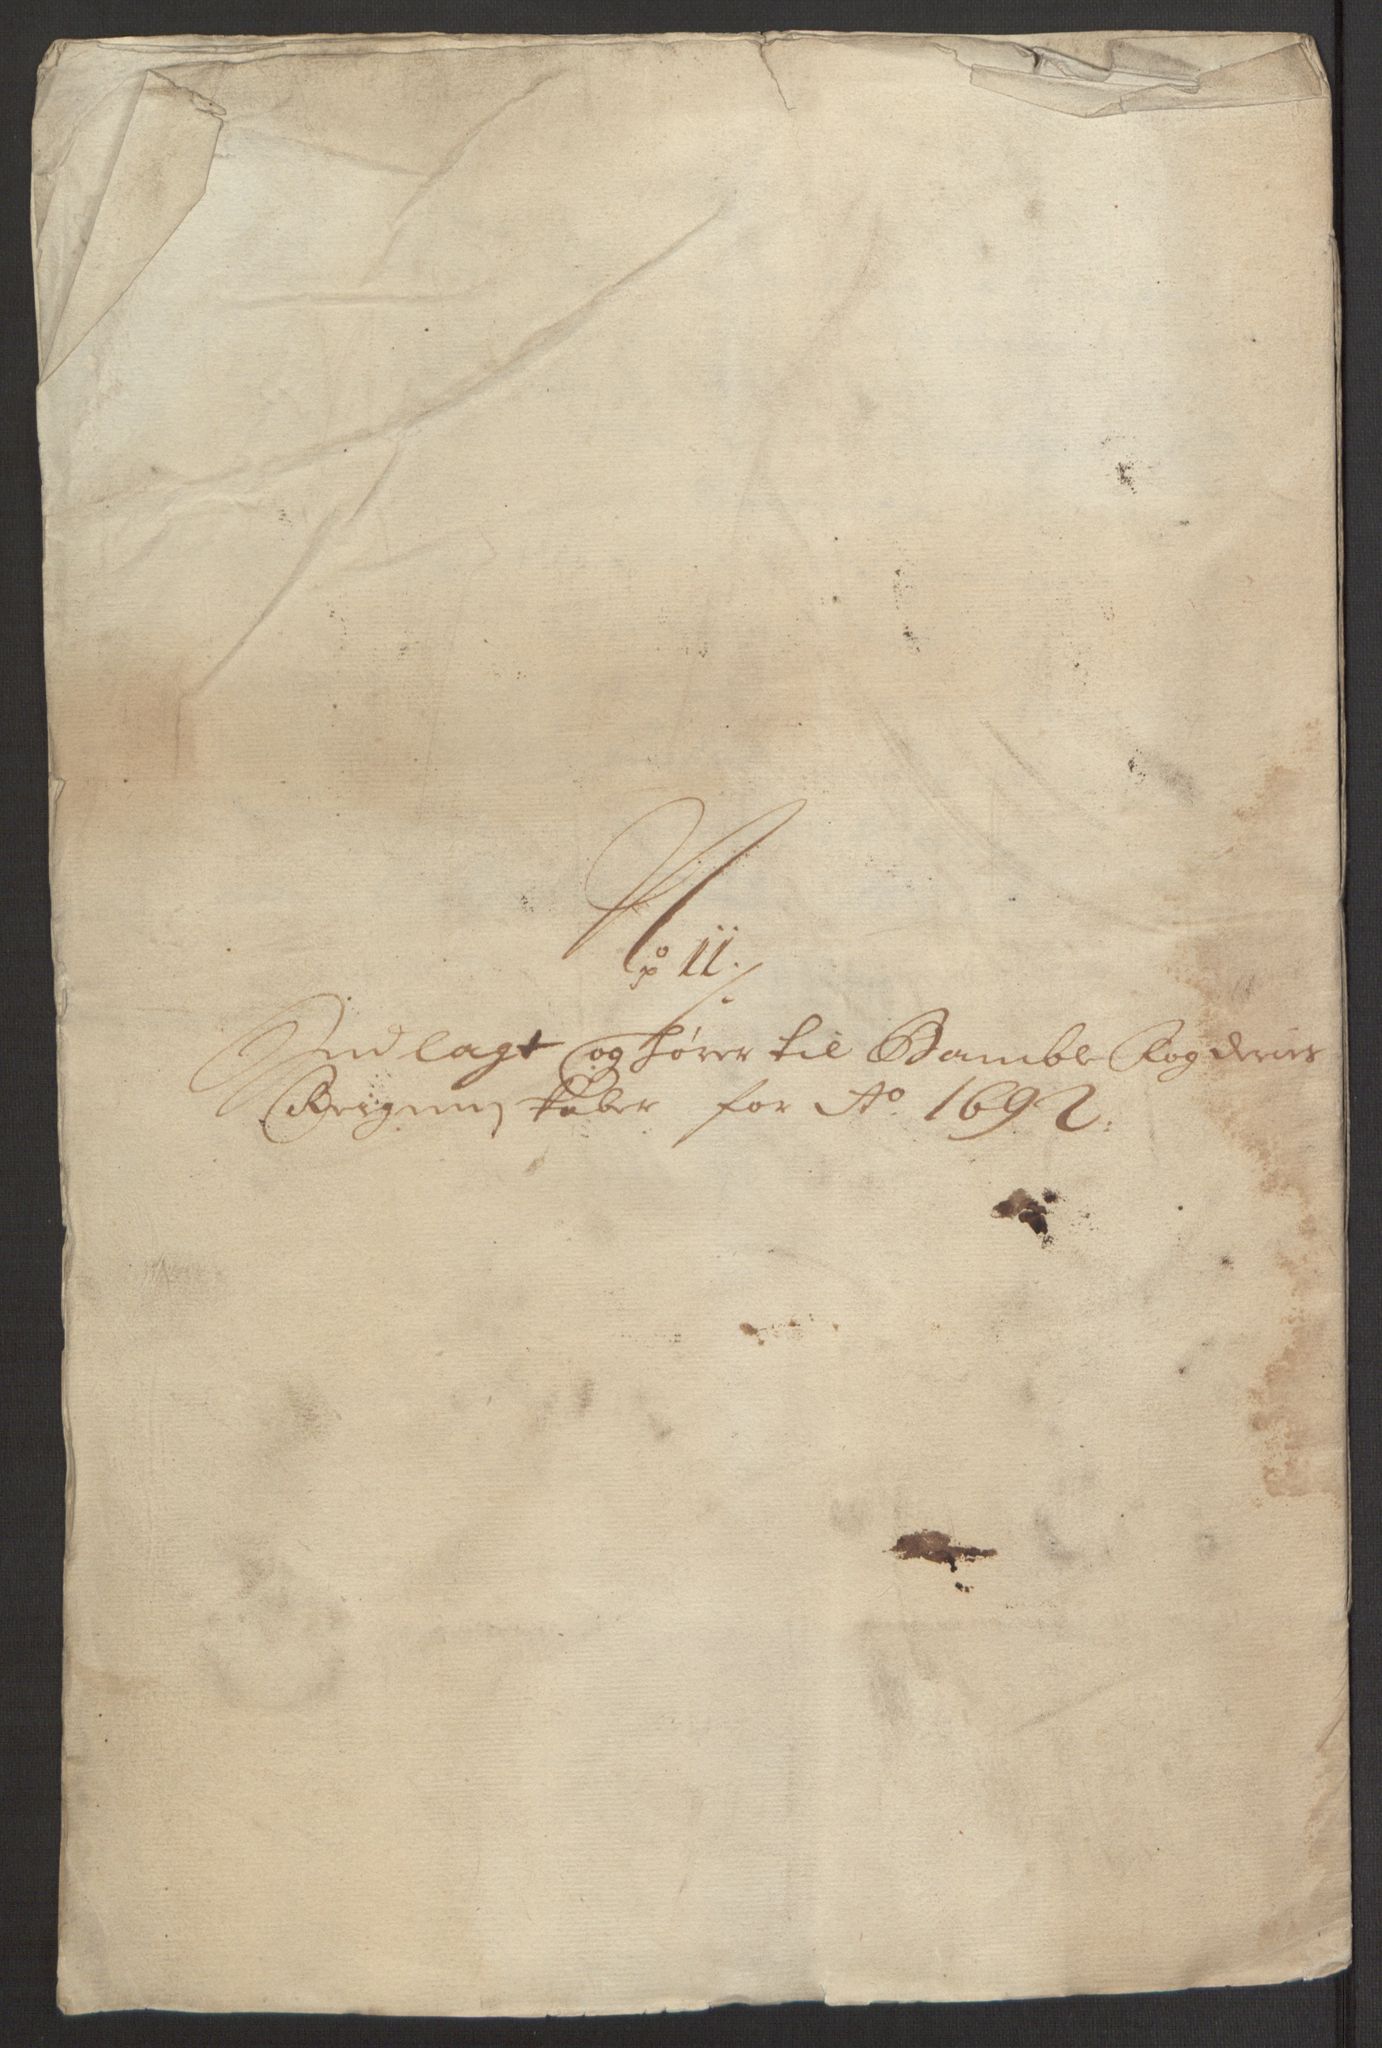 No 11.
Indlagt og hører til Bamble Fogderies
Reignenskaber for Ao 1692.